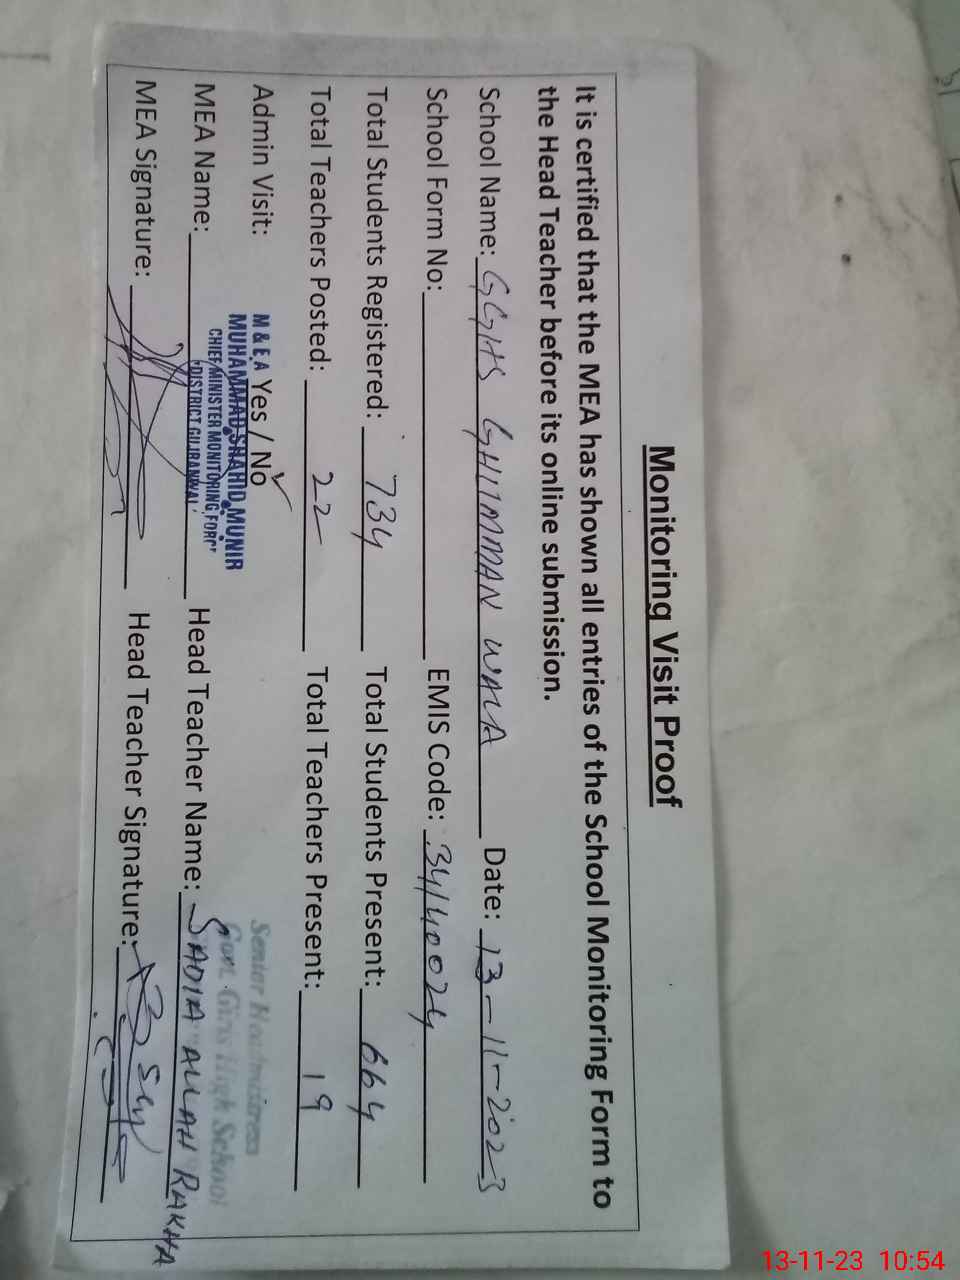 Monitoring Visit Proof
It is certified that the MEA has shown all entries of the School Monitoring Form to
the Head Teacher before its online submission.
School Name: GGHS GHIMMAN WALA Date: 13-11-2023
School Form No: EMIS Code: 34140024
Total Students Registered: 734 Total Students Present: 664
Total Teachers Posted: 22 Total Teachers Present: 19
Admin Visit: Yes / No
M & E.A
MUHAMMAD SHAHID MUNIR
CHIEF MINISTER MONITORING FORC
DISTRICT GUJRANWAL
Senior Headmistress
Govt. Girls High School
MEA Name: Head Teacher Name: SADIA ALLAH RAKHA
MEA Signature: Head Teacher Signature:
13-11-23 10:54